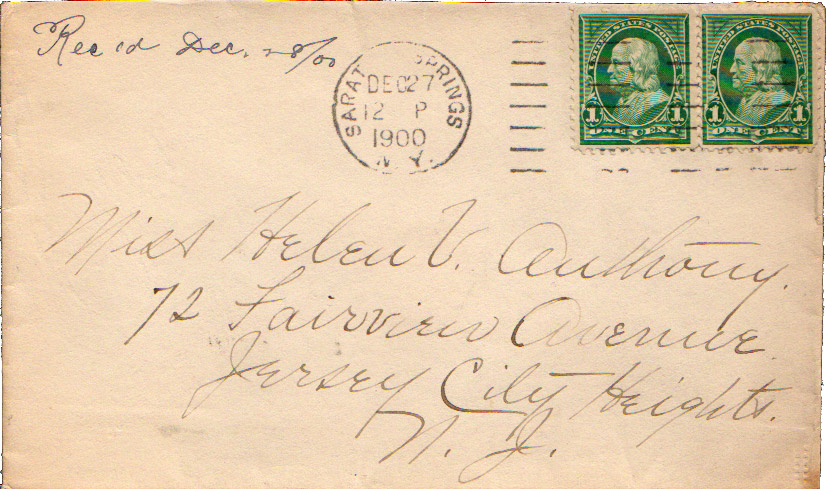 Rec'd Dec. 28/00
SARAT SPRINGS
DEC 27
12 P
1900
N. Y.
UNITED STATES POSTAGE
1 1
ONE CENT
UNITED STATES POSTAGE
1 1
ONE CENT
Miss Helen V. Anthony.
72 Fairview Avenue
Jersey City Heights.
N. J.